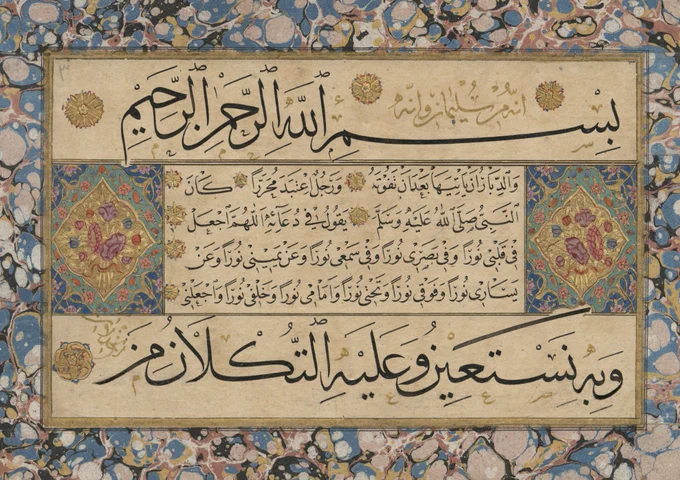 انه من سليمان وانه
بِسْمِ اللَّهِ الرَّحْمٰنِ الرَّحِيْمِ
والدبار ان ياتيها بعد ان تفوته ورجل اعتبد محررا كان
النبي صلى الله عليه وسلم يقول في دعائه اللهم اجعل
في قلبي نورا وفي بصري نورا وفي سمعي نورا وعن يميني نورا وعن
يساري نورا وفوقي نورا وتحتي نورا وامامي نورا وخلفي نورا واجعل لي
وَبِهِ نَسْتَعِيْنُ وَعَلَيْهِ التُّكْلَانُ مِنْ